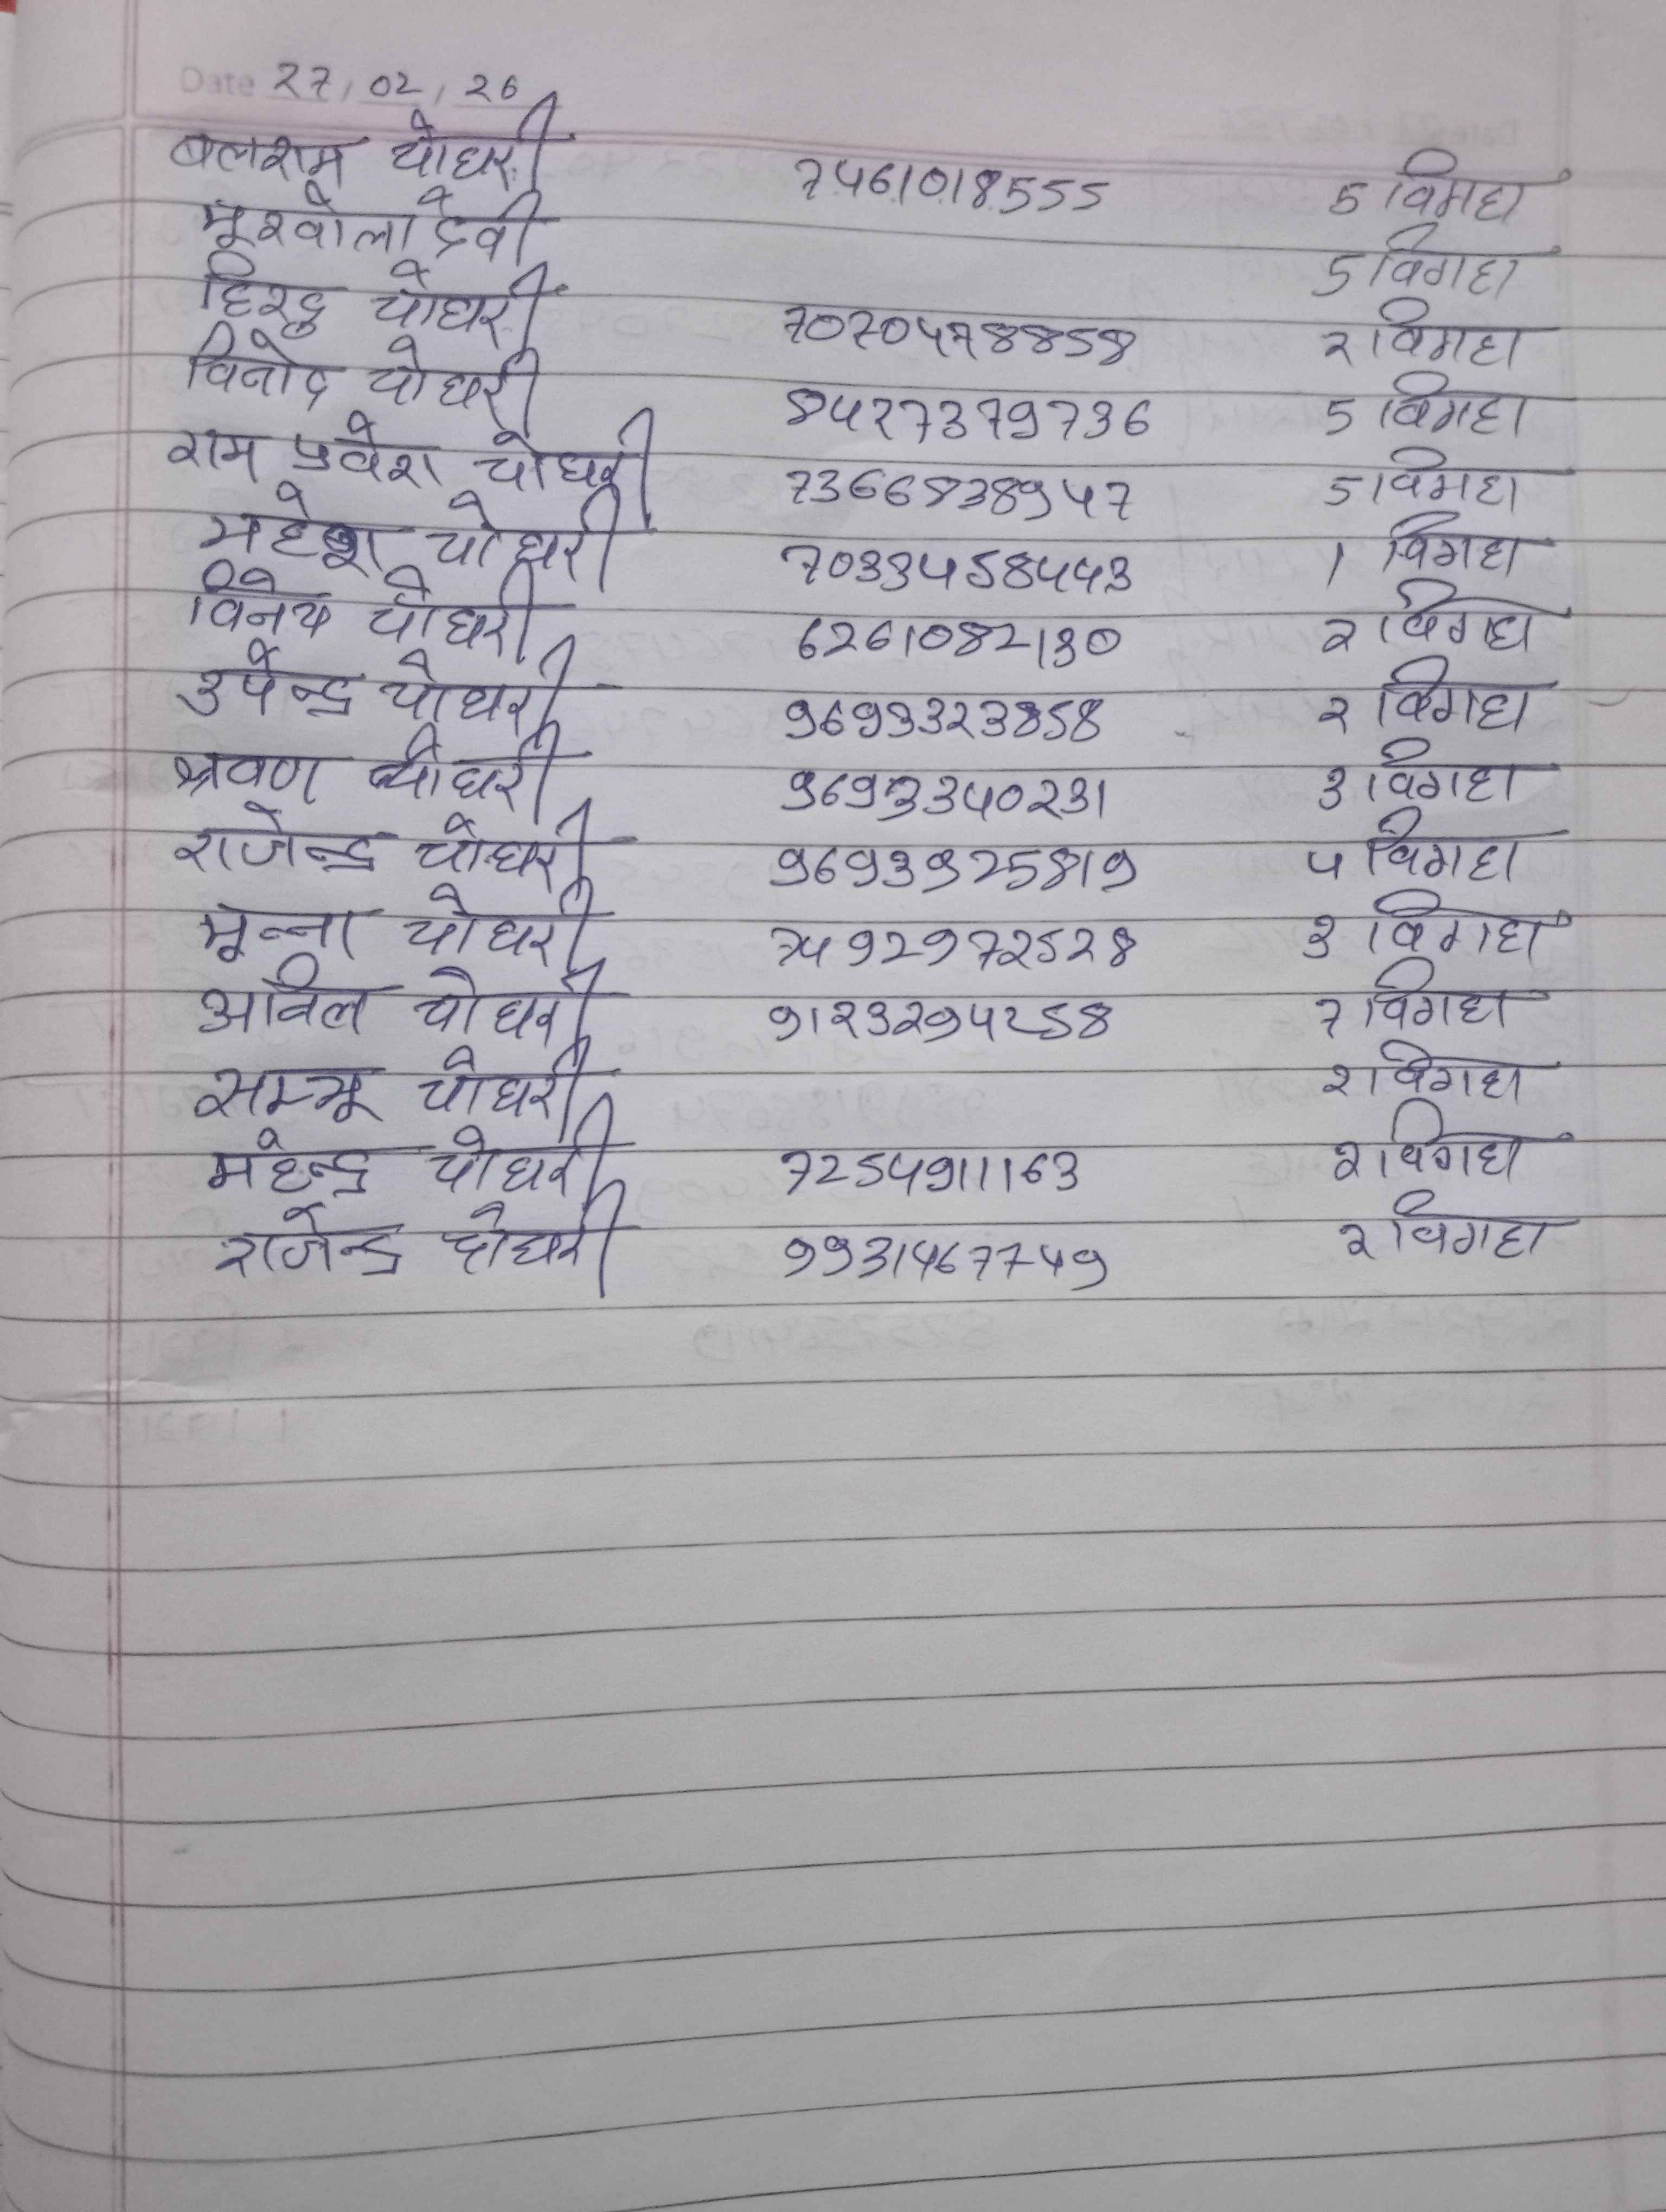 Date 27/02/26
बलराम चौधरी 7461018555 5 विगहा
मूरवोला देवी 5 विगहा
हिरदु चौधरी 5 7020478858 2 विगहा
विनोद चौधरी 8427379736 5 विगहा
राम प्रवेश चौधरी 7366838947 5 विगहा
महेश चौधरी 7033458443 1 विगहा
विनय चौधरी 6261082130 2 विगहा
उपेन्द्र चौधरी 9693323858 2 विगहा
श्रवण चौधरी 9693340231 3 विगहा
राजेन्द्र चौधरी 9693925819 5 विगहा
मून्ना चौधरी 7492972528 3 विगहा
अनिल चौधरी 9123294258 7 विगहा
सम्भू चौधरी 2 विगहा
महेन्द्र चौधरी 7254911163 2 विगहा
राजेन्द्र चौधरी 9931467749 2 विगहा